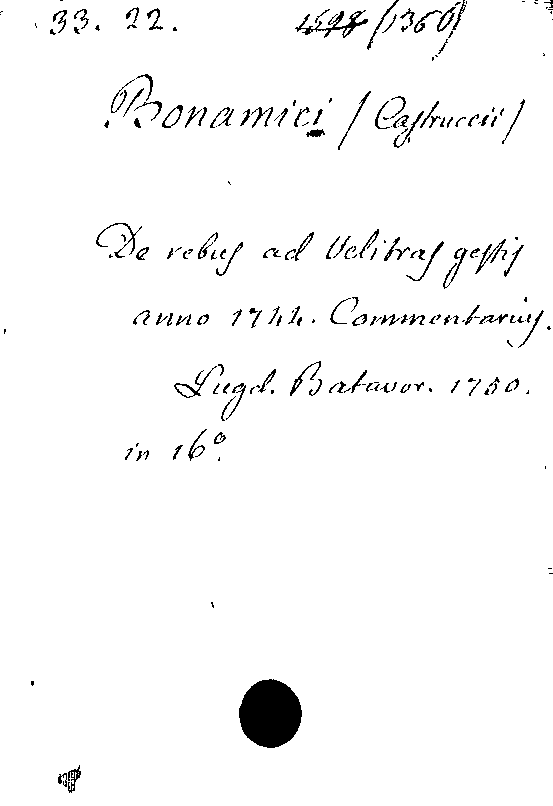 33. 22. 1598 (1360)
Bonamici / Castruccii /
De rebus ad Velitras gestis
anno 1744. Commentarius.
Lugd. Batavor. 1750.
in 16°.